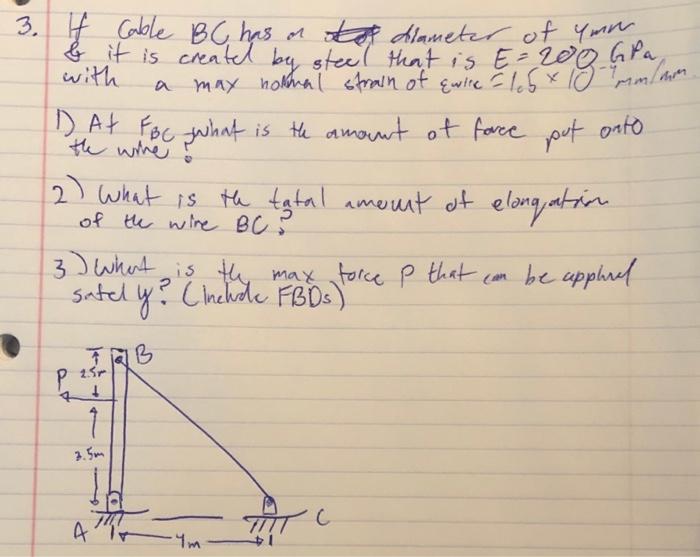 3. If Cable BC has a diameter of 4mm
& it is created by steel that is E = 200 GPa
with a max normal strain of εwire = 1.5 × 10 mm/mm
1) At FBC what is the amount of force put onto
the wire?
2) What is the total amount of elongation
of the wire BC?
3) What is the max force P that can be applied
safely? (Include FBDs)
B
P 2.5m
3.5m
A C
4m